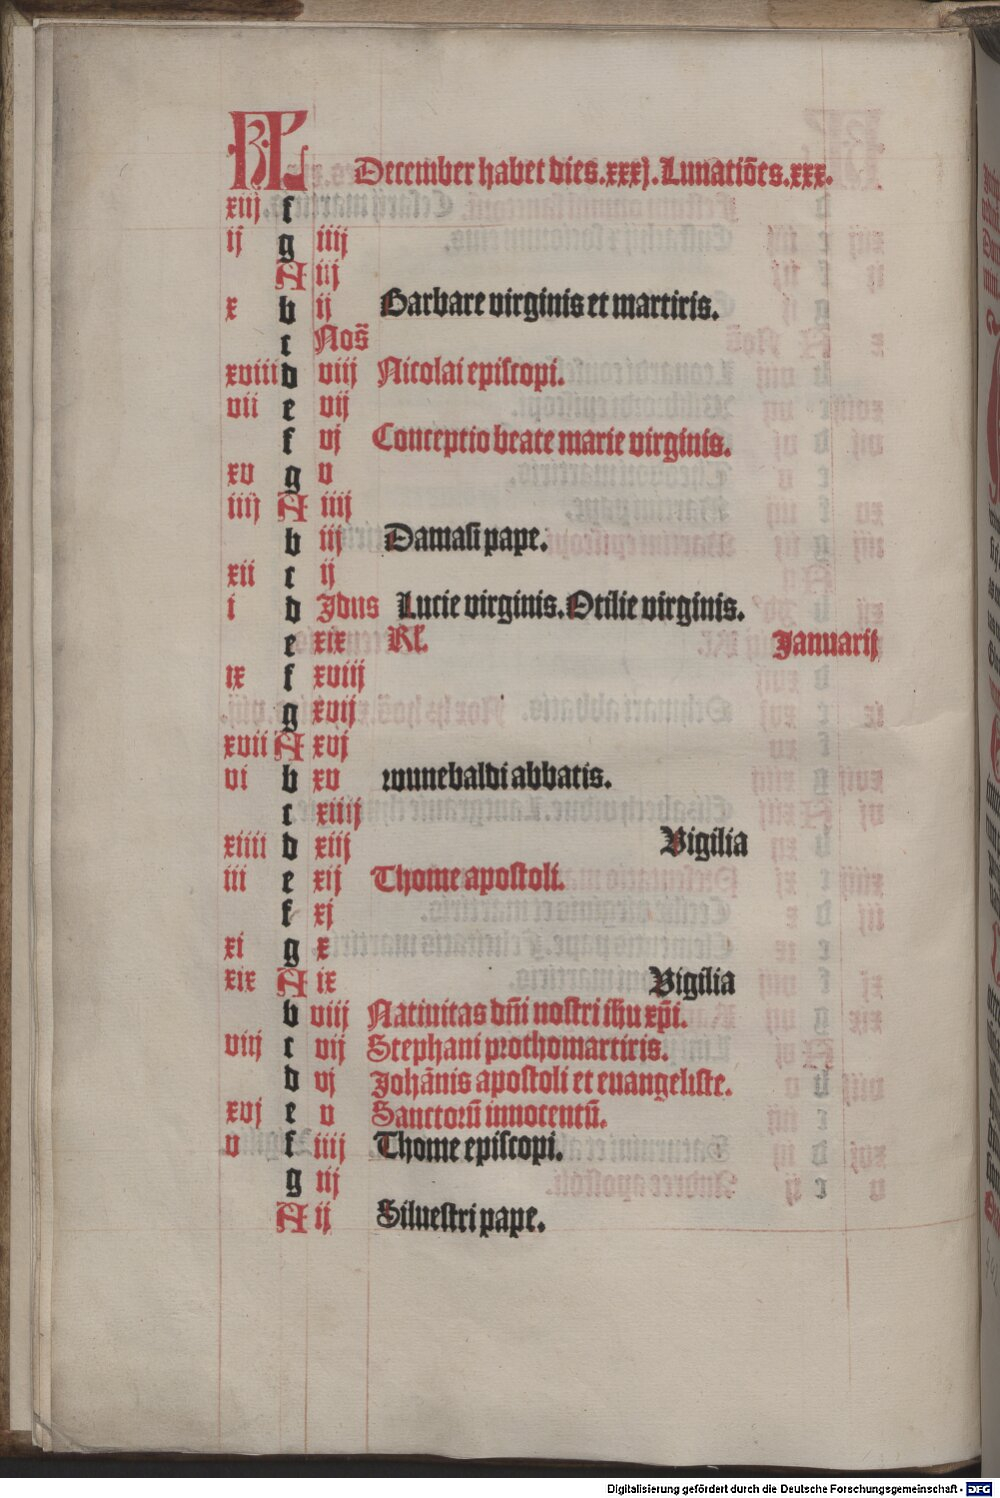 KL December habet dies .xxxj. Lunatiōes .xxx.
xiij f
ij g iiij
A iij
x b ij Barbare virginis et martiris.
c Nos̄
xviii d viij Nicolai episcopi.
vii e vij
f vj Conceptio beate marie virginis.
xv g v
iiij A iiij
b iij Damasi pape.
xii c ij
i d Jdus Lucie virginis. Otilie virginis.
e xix Kl. Januarij
ix f xviij
g xvij
xvii A xvj
vi b xv wunebaldi abbatis.
c xiiij
xiiii d xiij Vigilia
iii e xij Thome apostoli.
f xj
xi g x
xix A ix Vigilia
b viij Natiuitas dn̄i nostri ihu xp̄i.
viij c vij Stephani prothomartiris.
d vj Johānis apostoli et euangeliste.
xvj e v Sanctorū innocentū.
v f iiij Thome episcopi.
g iij
A ij Siluestri pape.
Digitalisierung gefördert durch die Deutsche Forschungsgemeinschaft - DFG